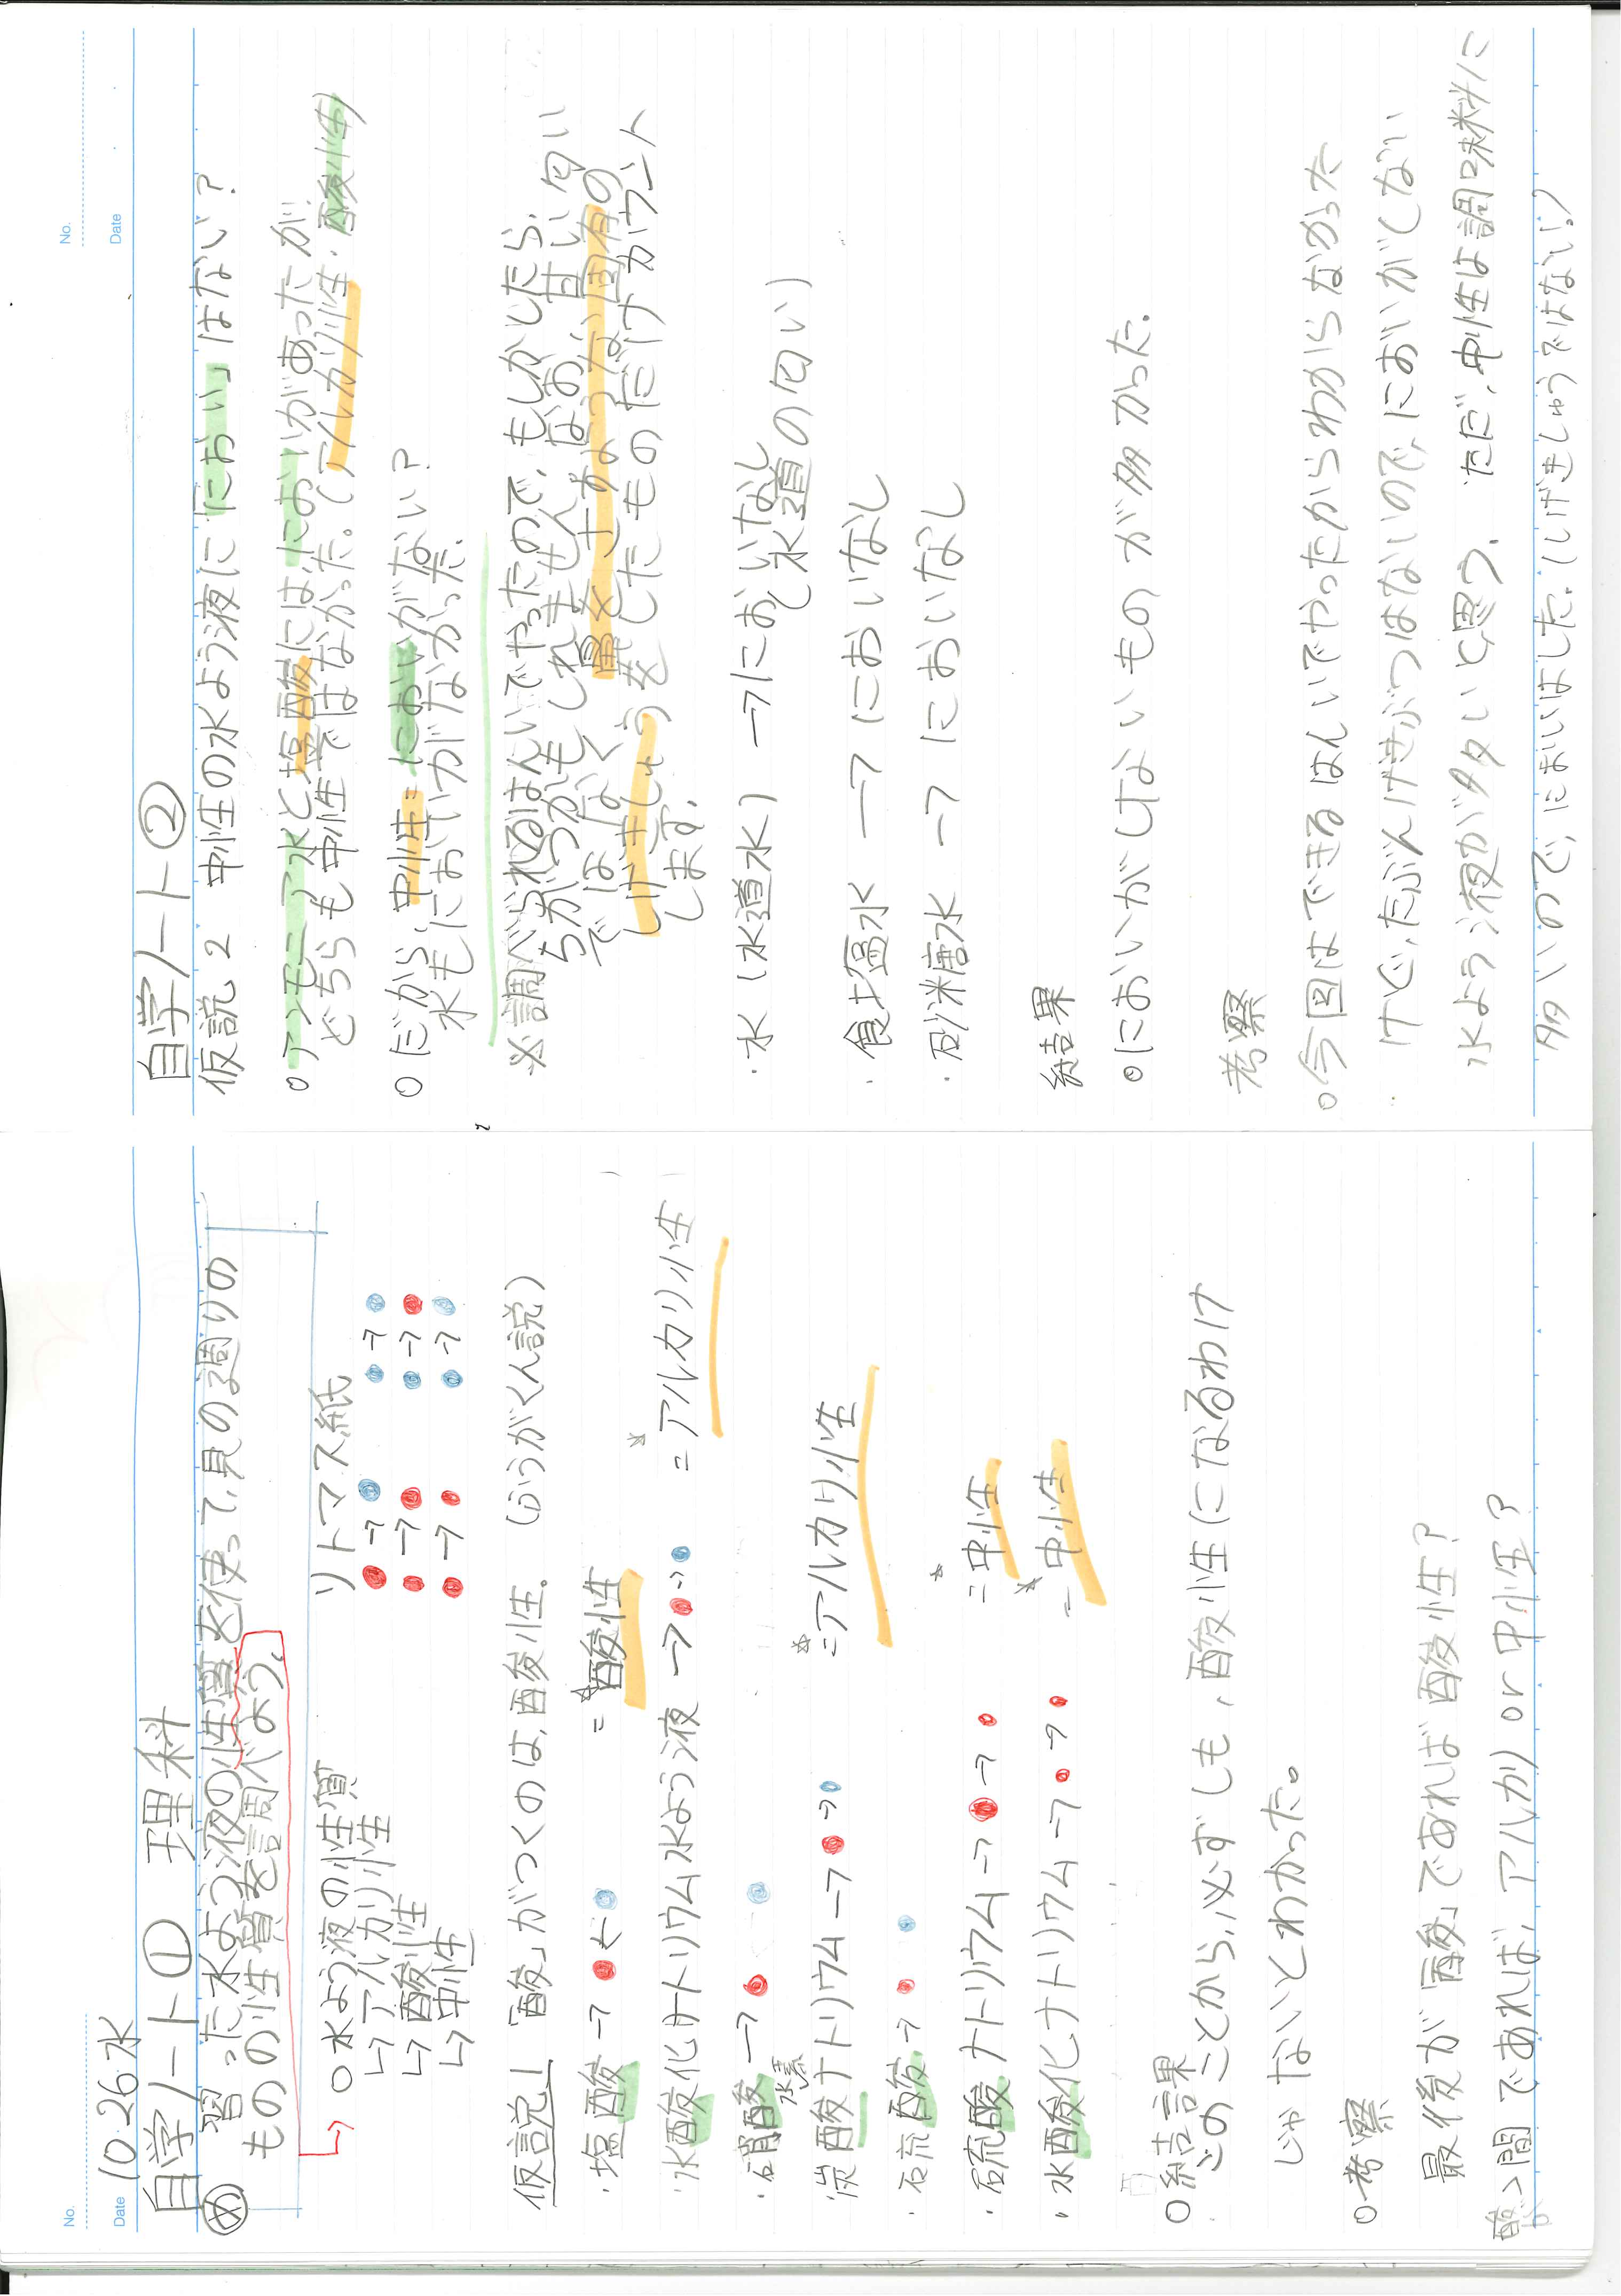 No.
Date 10・26 水
自学ノート① 理科
め 習った水よう液の性質を使って、身の周りの
ものの性質を調べよう。
○水よう液の性質 リトマス紙
↳アルカリ性 →  →
↳酸性 →  →
↳中性 →  →
仮説1 「酸」がつくのは、酸性。
・塩酸→ = ☆酸性
・水酸化ナトリウム水よう液→ → = アルカリ性
・硝酸→
水素
・炭酸ナトリウム→ → = アルカリ性
・硫酸→
・硫酸ナトリウム→ → = 中性
・水酸化ナトリウム→ → = 中性
○結果
このことから、必ずしも、酸性になるわけ
じゃないとわかった。
○考察
最後が「酸」であれば酸性?
酸が間であれば、アルカリor中性?
No.
Date
自学ノート②
仮説2 中性の水よう液に「におい」はない?
○アンモニア水と塩酸にはにおいがあったが、
どちらも中性ではなかった。(アルカリ性・酸性)
○だから、中性=においがない?
水もにおいがなかった。
※調べられるはんいでやったので、もしかしたら、
ちがうかもしれません。なお、甘い匂い
ではなく、鼻を
しげきしゅうをしたものだけカウント
します。
・水(水道水)→においなし
↳水道の匂い)
・食塩水→においなし
・砂糖水→においなし
結果
○においがしないものが多かった。
考察
○今回はできるはんいでやったからわからなかった
けど、たぶんげきぶつはないので、においがしない
水よう液が多いと思う。ただ、中性は調味料に
多いので、においはした。(しげきしゅうではない。)